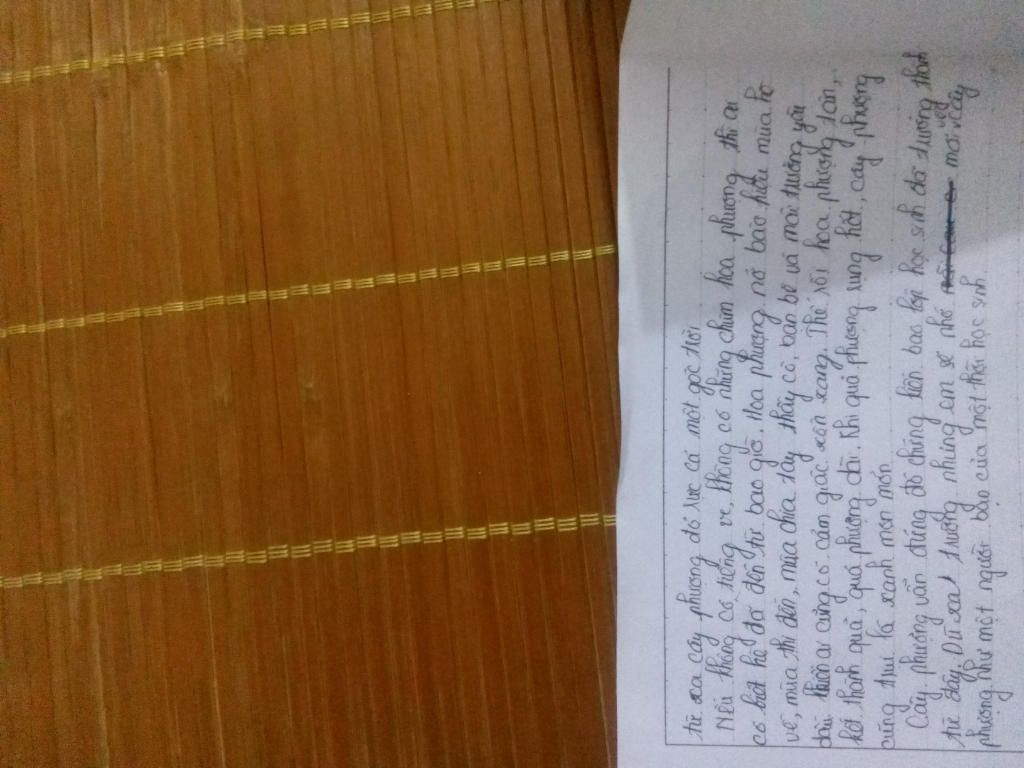 từ xa cây phượng đỏ rực cả một góc trời.
Nếu không có tiếng ve, không có những chùm hoa phương thì ai
có biết hè đã đến từ bao giờ. Hoa phượng nở báo hiệu mùa hè
về, mùa thi đến, mùa chia tay thầy cô, bạn bè và mái trường yêu
dấu ai cũng có cảm giác xốn xang. Thế rồi hoa phượng tàn,
kết thành quả, quả phượng dài. Khi quả phượng rụng hết, cây phượng
cũng thu lá xanh mơn mởn
Cây phượng vẫn đứng đó chứng kiến bao lớp học sinh đã trưởng thành
từ đây. Dù xa trường nhưng em sẽ nhớ mãi về cây
phượng như một người bạn của một thời học sinh.